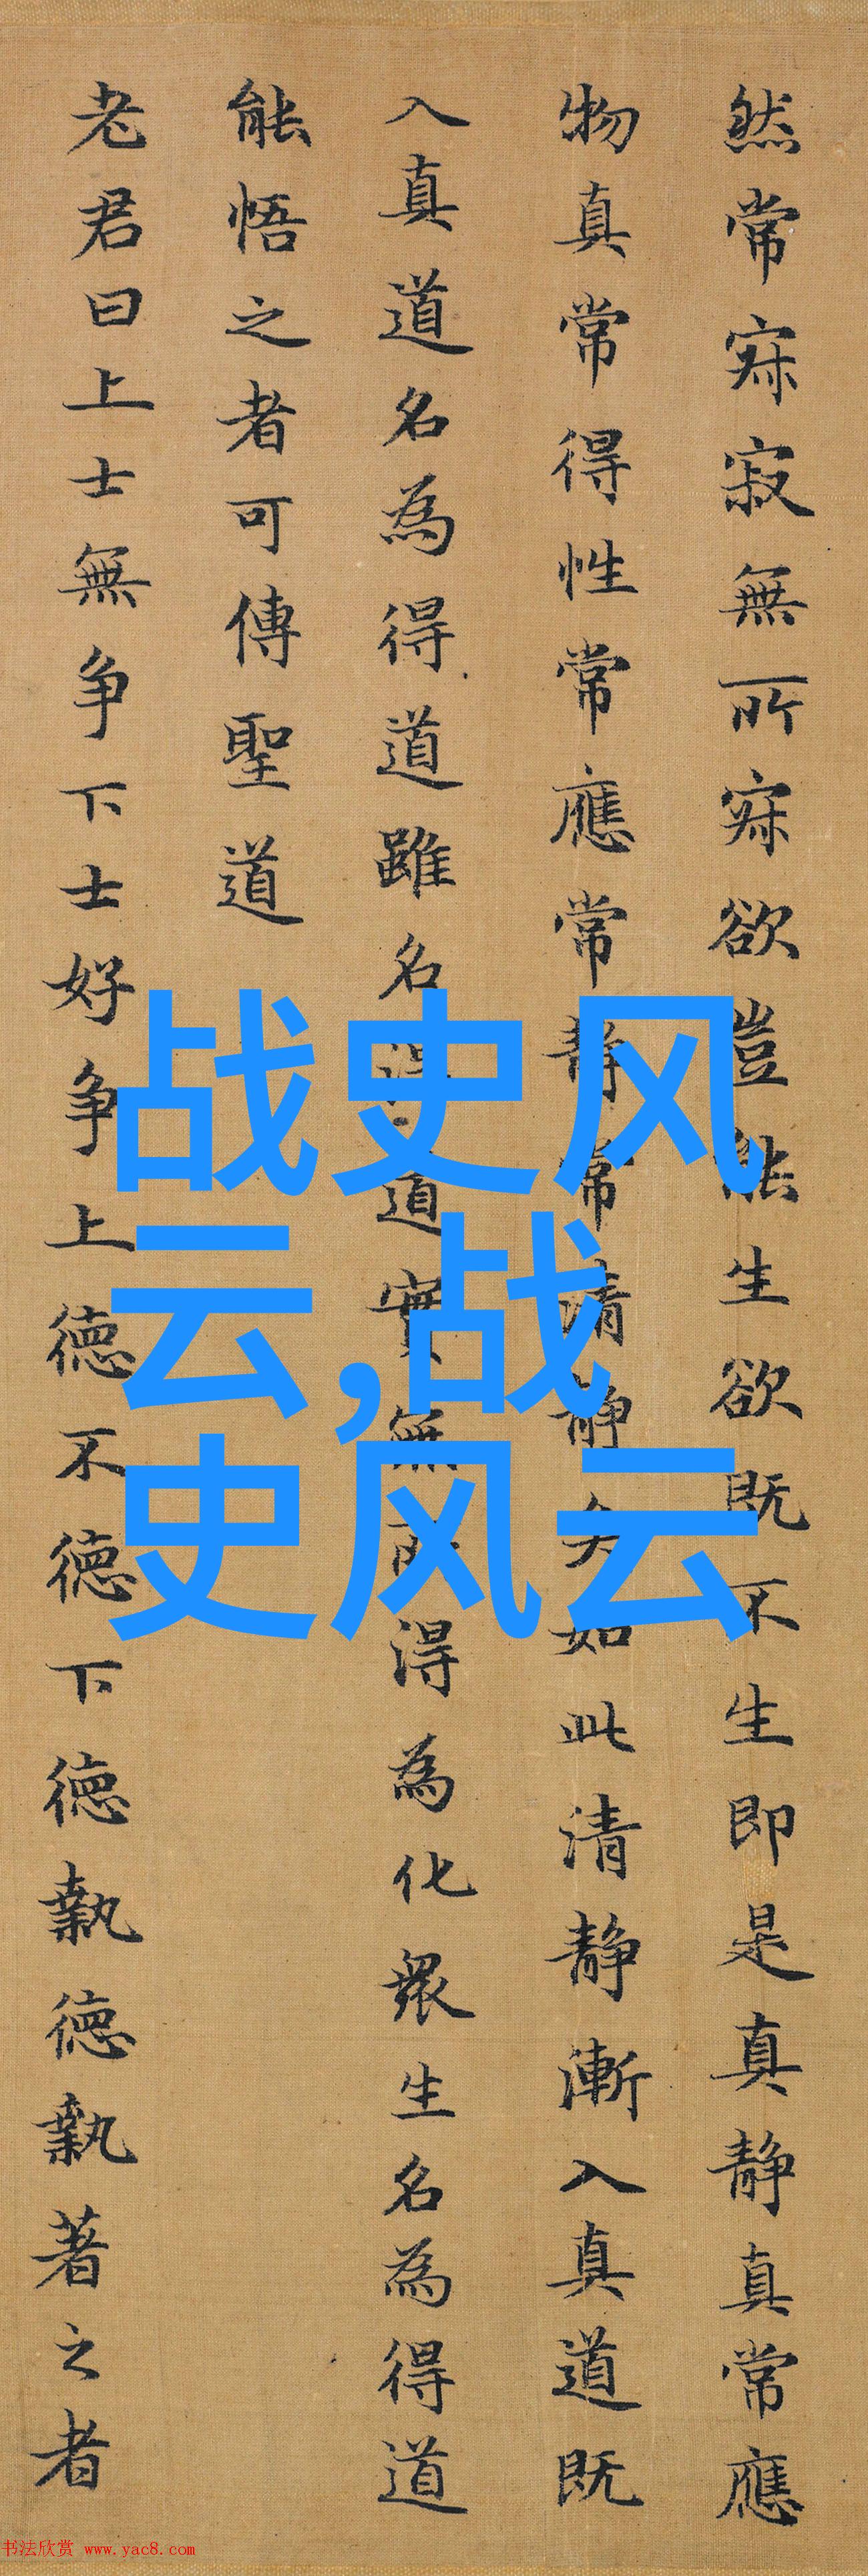 然常寂寂無所寂欲豈能生欲既不生即是真静真常應
物真常得性常應常静常清静矣如此清静漸入真道既
入真道名為得道雖名得道實無所得為化眾生名為得道
能悟之者可傳聖道
老君曰上士無争下士好争上德不德下德執德執著之者
战史风
云,战
史风云
书法欣赏 www.yac8.com